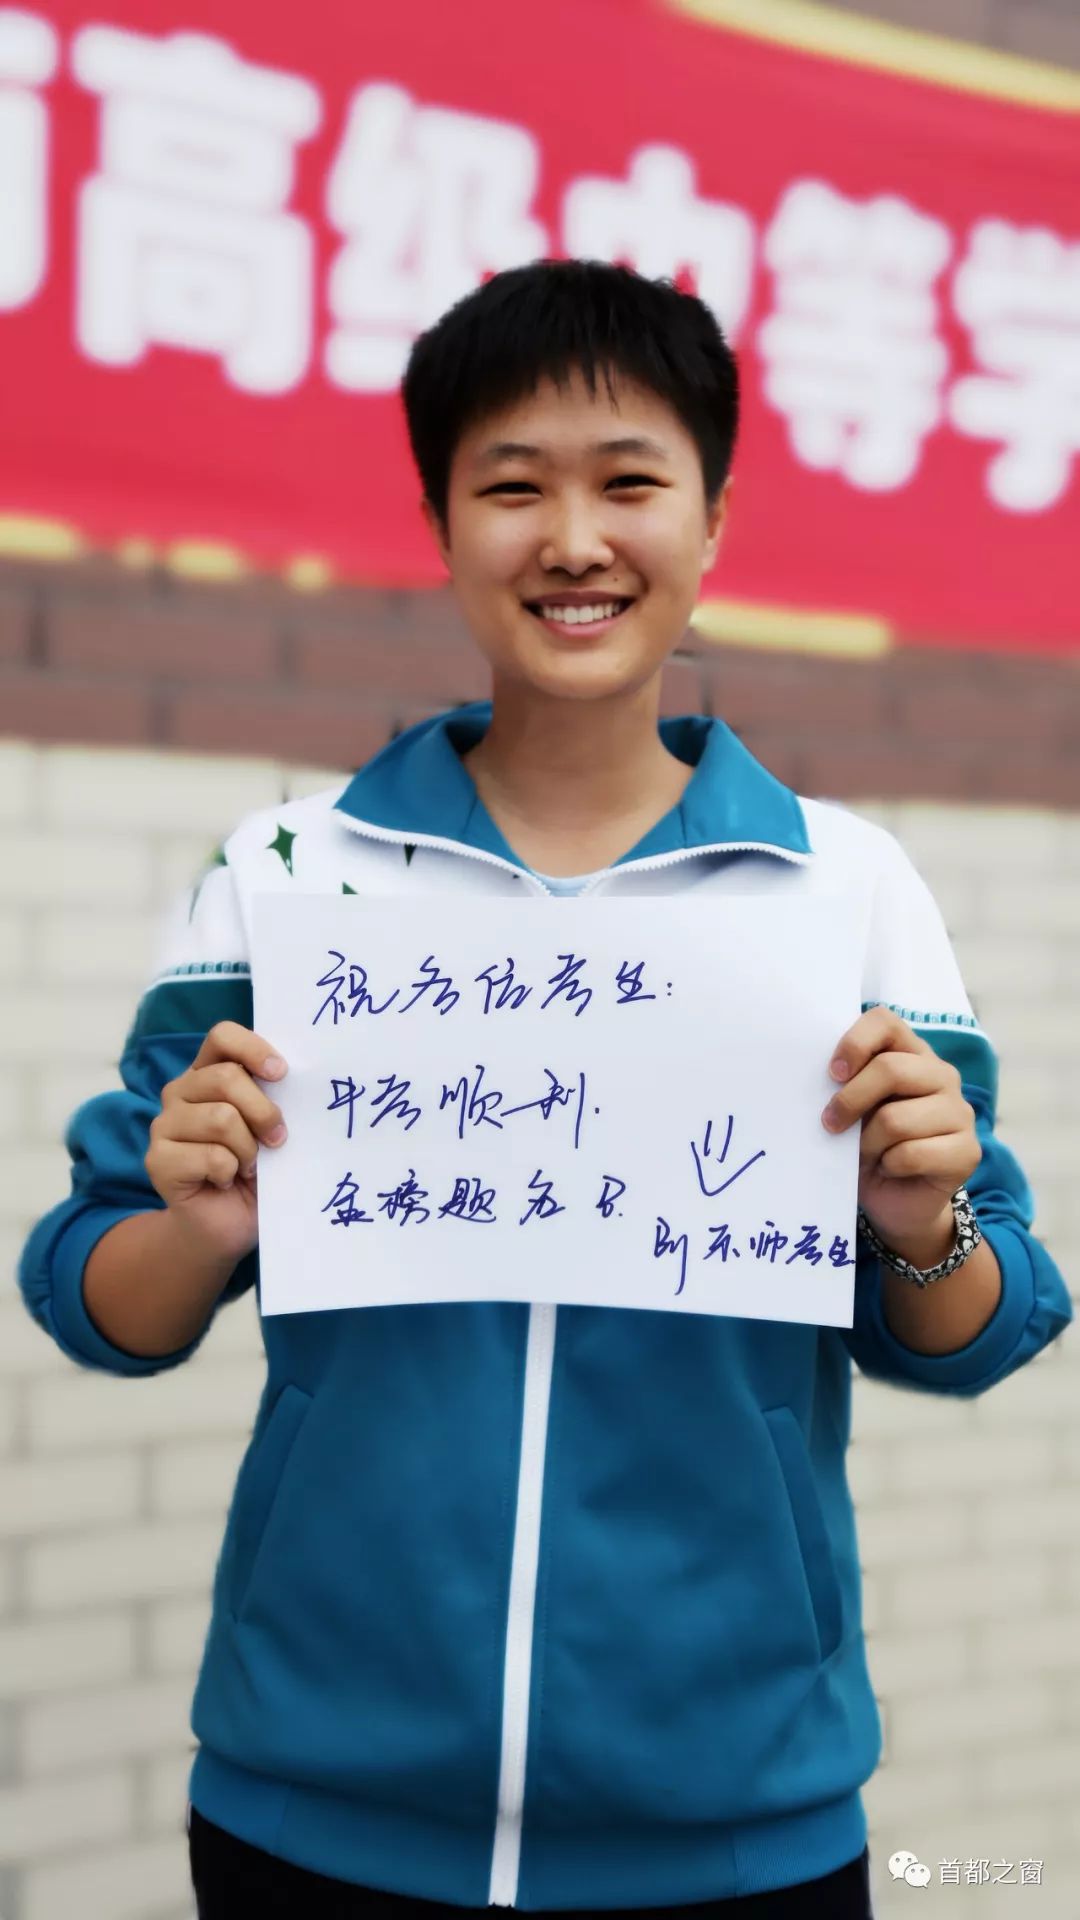 市高级中等学
祝各位考生:
中考顺利.
金榜题名
By 师考生
首都之窗